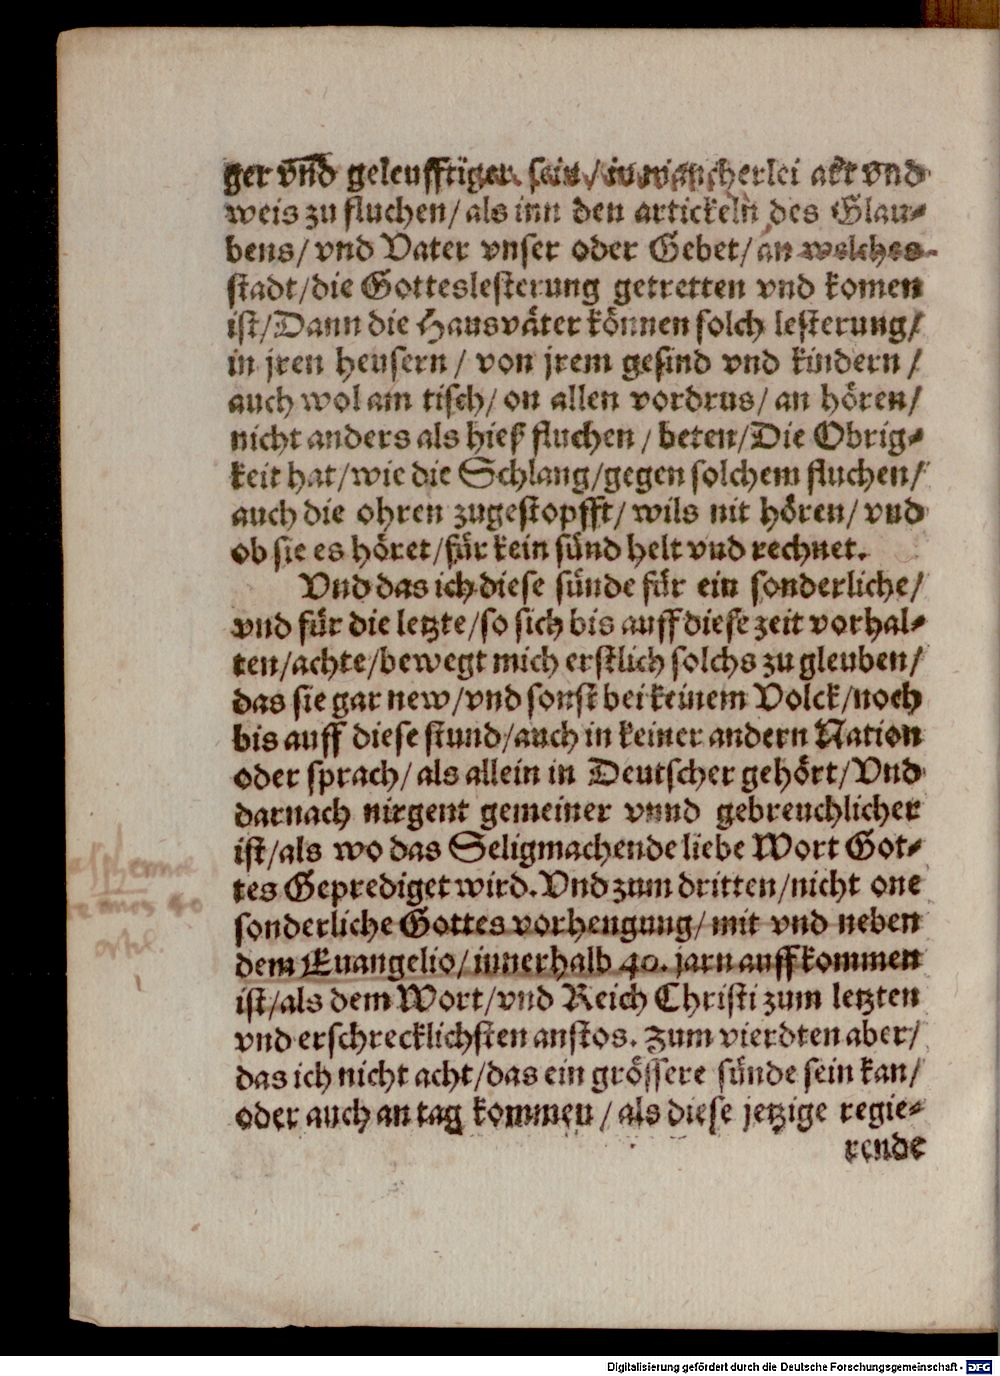 ger vnd geleufftiger sein / in mancherlei art vnd
weis zu fluchen / als inn den artickeln des Glau⸗
bens / vnd Vater vnser oder Gebet / an welches
stadt / die Gotteslesterung getretten vnd komen
ist / Dann die Hausväter können solch lesterung /
in jren heusern / von jrem gesind vnd kindern /
auch wol am tisch / on allen vordrus / an hören /
nicht anders als hies fluchen / beten / Die Obrig⸗
keit hat / wie die Schlang / gegen solchem fluchen /
auch die ohren zugestopfft / wils nit hören / vnd
ob sie es höret / für kein sünd helt vnd rechnet.
Vnd das ich diese sünde für ein sonderliche /
vnd für die letzte / so sich bis auff diese zeit vorhal⸗
ten / achte / bewegt mich erstlich solchs zu gleuben /
das sie gar new / vnd sonst bei keinem Volck / noch
bis auff diese stund / auch in keiner andern Nation
oder sprach / als allein in Deutscher gehört / Vnd
darnach nirgent gemeiner vnnd gebreuchlicher
ist / als wo das Seligmachende liebe Wort Got⸗
tes Geprediget wird. Vnd zum dritten / nicht one
sonderliche Gottes vorhengung / mit vnd neben
dem Euangelio / innerhalb 40. jarn auffkommen
ist / als dem Wort / vnd Reich Christi zum letzten
vnd erschrecklichsten anstos. Zum vierdten aber /
das ich nicht acht / das ein grössere sünde sein kan /
oder auch an tag kommen / als diese jetzige regie⸗
rende
annos 40
Digitalisierung gefördert durch die Deutsche Forschungsgemeinschaft - DFG